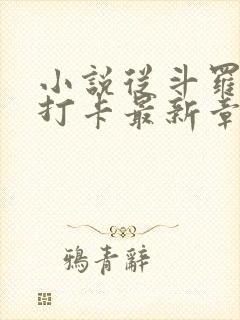 小說從斗羅
打卡最新章
鴉青辭